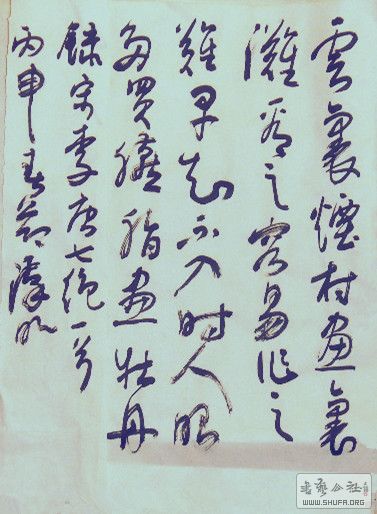 雲裏煙村畫裏
灘看之容易作之
難早知不入時人眼
多買臙脂畫牡丹
錄宋李唐七絕一首
丙申春節
書藝公社
WWW.SHUFA.ORG